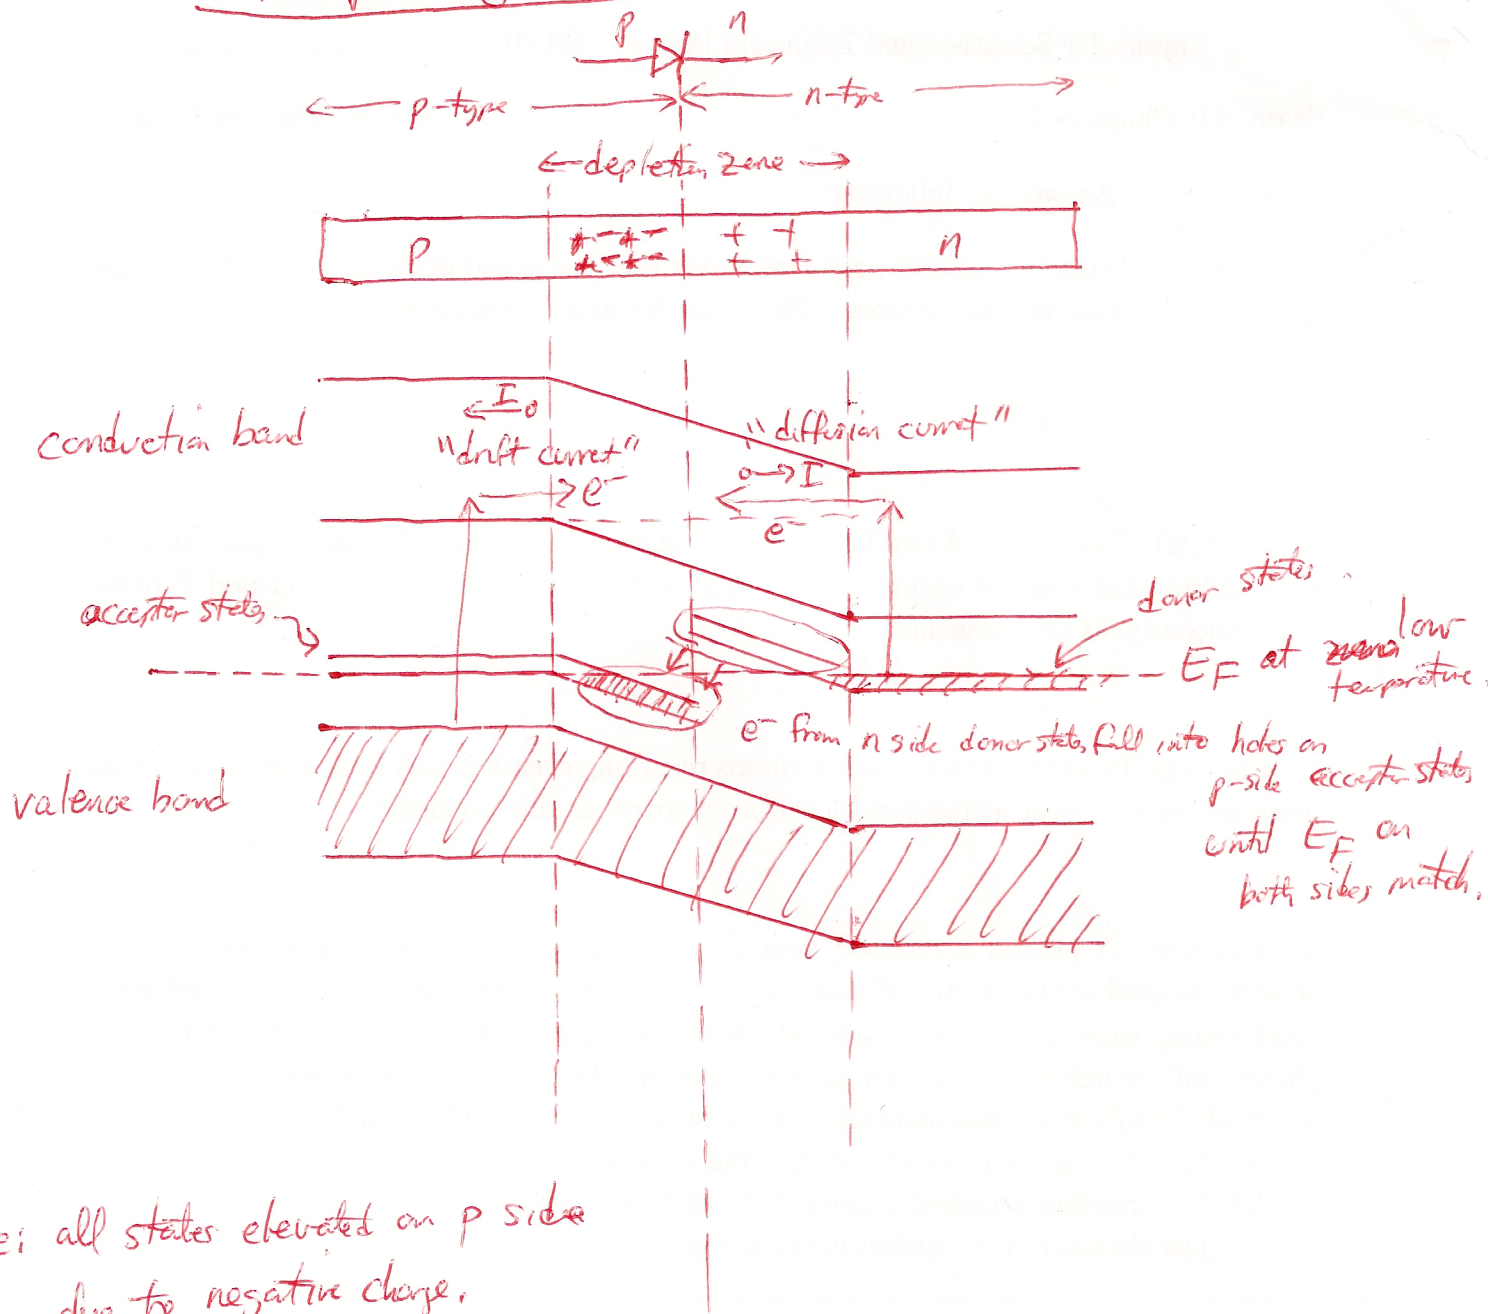 p n
p-type n-type
depletion zone
p - - - - + + n
- - - - + +
conduction band
I
"drift current"
"diffusion current"
I
e⁻
e⁻
acceptor states
donor states.
E_F at low
temperature.
e⁻ from n side donor states fall into holes on
p-side acceptor states
until E_F on
both sides match.
valence band
e: all states elevated on p side
due to negative charge.